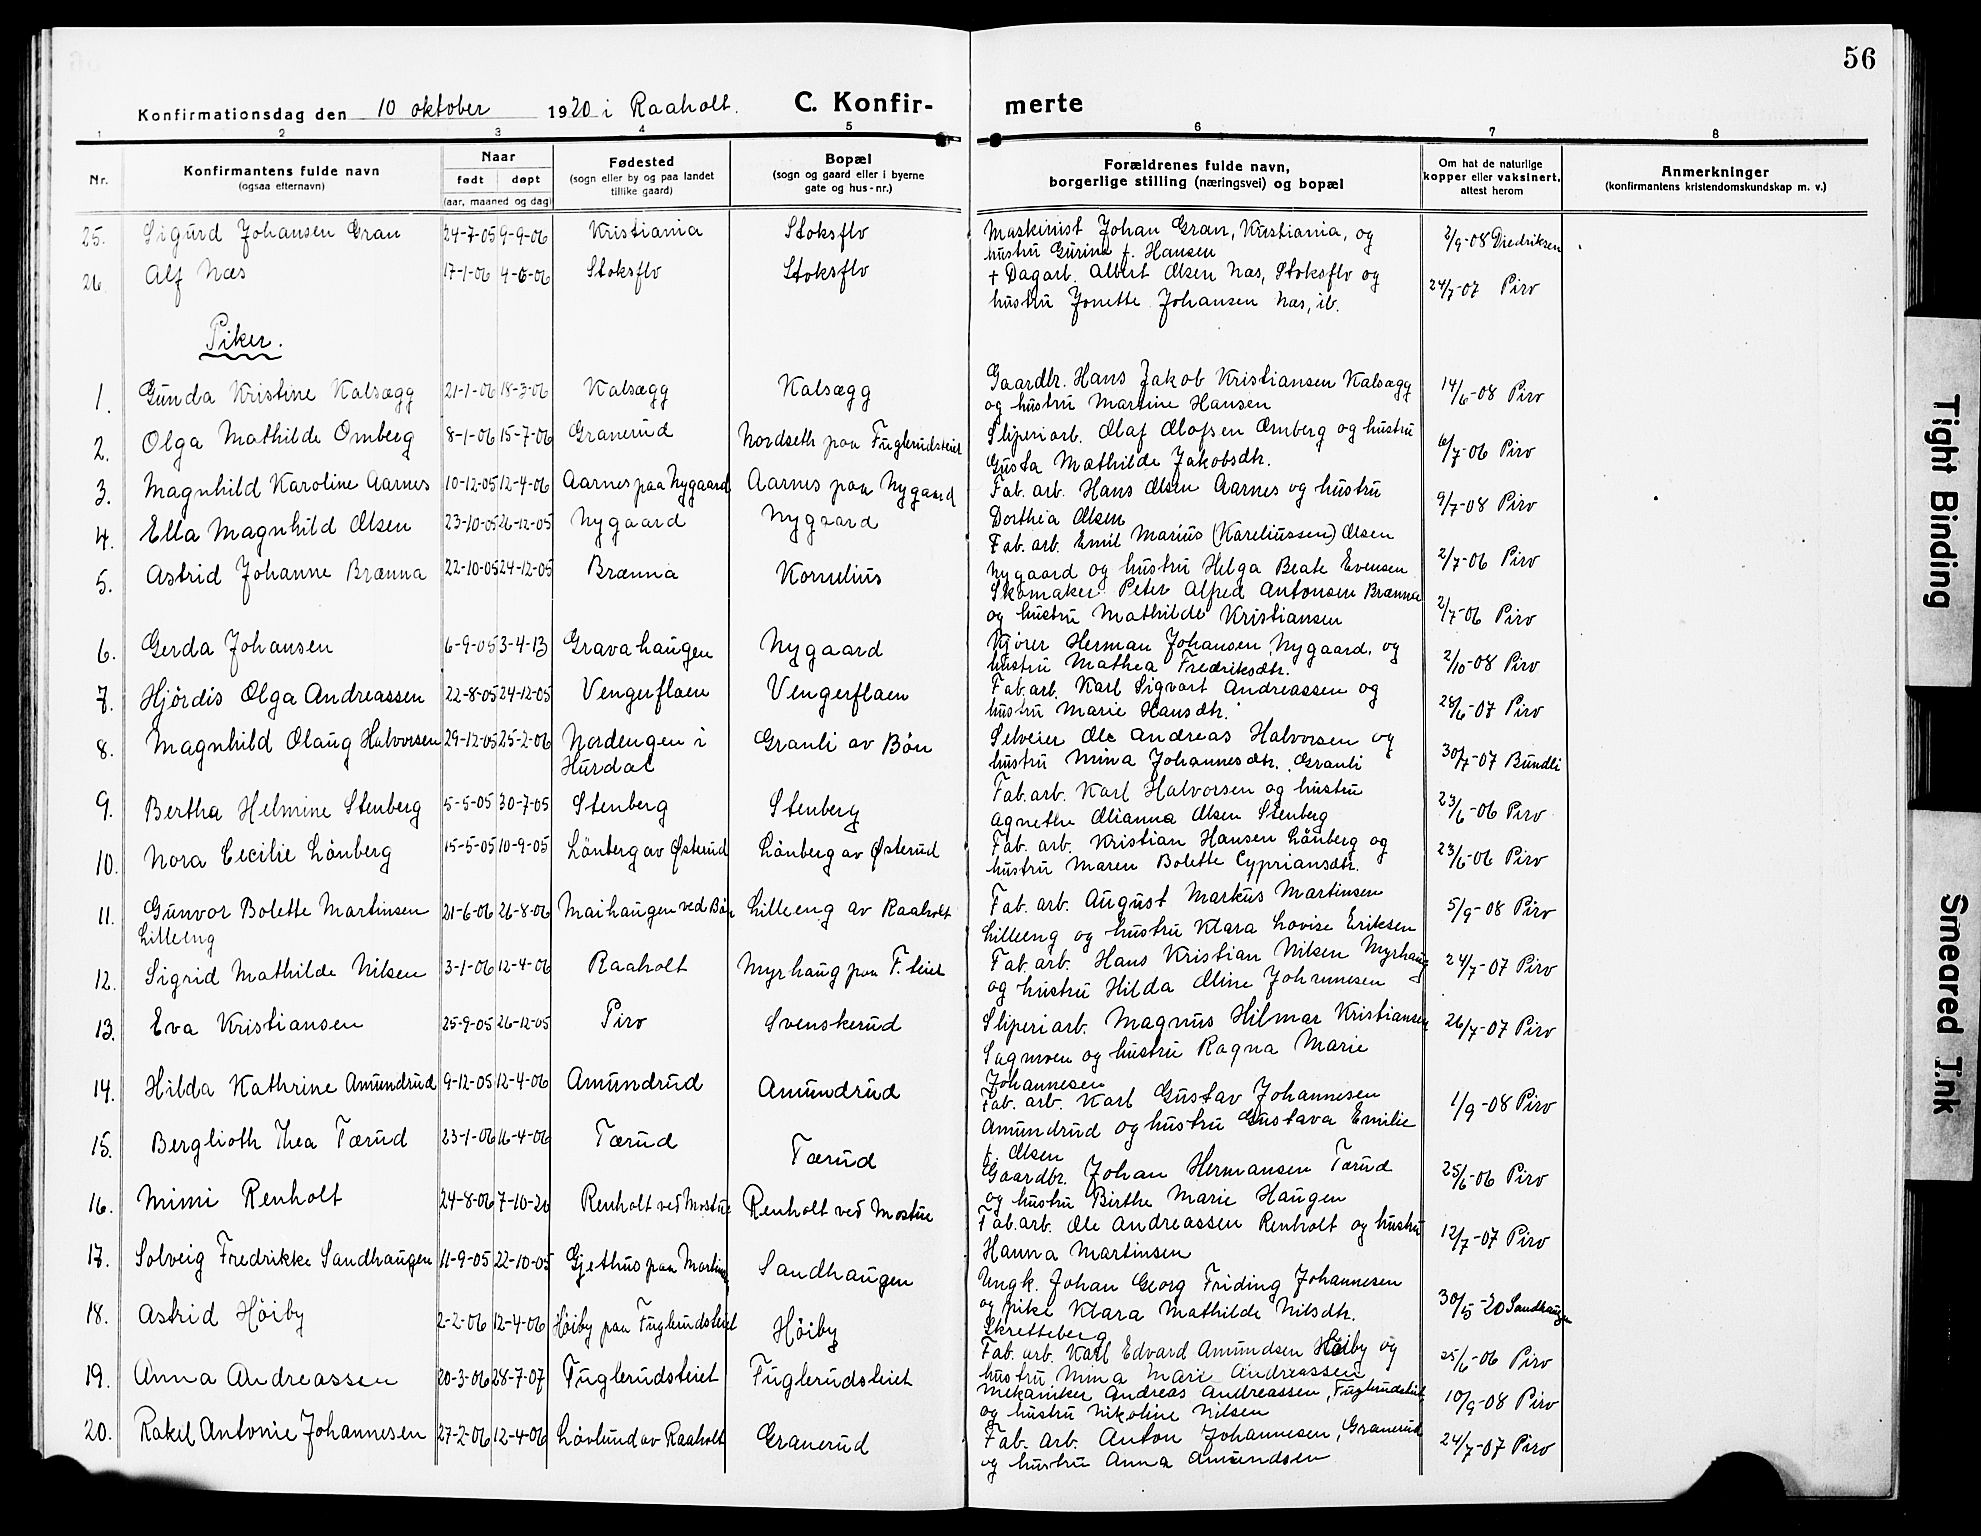 56
Konfirmationsdag den 10 oktober 1920 i Raaholt. C. Konfir- merte
1 2 3 4 5 6 7 8
Nr.
Konfirmantens fulde navn
(ogsaa efternavn)
Naar
født døpt
(aar, maaned og dag)
Fødested
(sogn eller by og paa landet
tillike gaard)
Bopæl
(sogn og gaard eller i byerne
gate og hus-nr.)
Forældrenes fulde navn,
borgerlige stilling (næringsvei) og bopæl
Om hat de naturlige
kopper eller vaksinert,
attest herom
Anmerkninger
(konfirmantens kristendomskundskap m. v.)
25. Sigurd Johansen Gran 24-7-05 9-9-06 Kristiania Stoksflo Maskinist Johan Gran, Kristiania, og 2/9-08 Diedriksen
hustru Gurine f. Hansen
26. Alf Næs 17-1-06 4-6-06 Stoksflo Stoksflo + Dagarb. Albert Olsen Næs, Stoksflo og 24/7-07 Piro
hustru Jonette Johansen Næs, ib.
Piker.
1. Gunda Kristine Kalsægg 21-1-06 18-3-06 Kalsægg Kalsægg Gaardbr. Hans Jakob Kristiansen Kalsægg 14/6-08 Piro
og hustru Martine Hansen
2. Olga Mathilde Omberg 8-1-06 15-7-06 Granerud Nordseth paa Fuglerudsteiet Sliperiarb. Olaf Olofsen Omberg og hustru 6/7-06 Piro
Gusta Mathilde Jakobsdtr.
3. Magnhild Karoline Aarnes 10-12-05 12-4-06 Aarnes paa Nygaard Aarnes paa Nygaard Fab. arb. Hans Olsen Aarnes og hustru 9/7-08 Piro
Dorthea Olsen
4. Ella Magnhild Olsen 23-10-05 26-12-05 Nygaard Nygaard Fab. arb. Emil Marius (Kareliussen) Olsen 2/7-06 Piro
Nygaard og hustru Helga Beate Evensen
5. Astrid Johanne Brænna 22-10-05 24-12-05 Brænna Kornelius Skomaker Peter Alfred Antonsen Brænna 2/7-06 Piro
og hustru Mathilde Kristiansen
6. Gerda Johansen 6-9-05 3-4-13 Gravahaugen Nygaard Kjører Herman Johansen, Nygaard, og 2/10-08 Piro
hustru Mathea Fredriksdtr.
7. Hjørdis Olga Andreassen 22-8-05 24-12-05 Vengerflaen Vengerflaen Fab. arb. Karl Sigvart Andreassen og 28/6-07 Piro
hustru Marie Hansdtr.
8. Magnhild Olaug Halvorsen 29-12-05 25-2-06 Nordengen i Granli av Bön Selveier Ole Andreas Halvorsen og 30/7-07 Bundli
Hurdal hustru Mina Johannesdtr. Granli
9. Bertha Helmine Stenberg 5-5-05 30-7-05 Stenberg Stenberg Fab. arb. Karl Halvorsen og hustru 23/6-06 Piro
Agnethe Olianna Olsen Stenberg
10. Nora Cecilie Lönberg 15-5-05 10-9-05 Lönberg av Østerud Lönberg av Østerud Fab. arb. Kristian Hansen Lönberg og 23/6-06 Piro
hustru Maren Bolette Cypriansdtr.
11. Gunvor Bolette Martinsen 21-6-06 26-8-06 Maihaugen ved Bön Lilleeng av Raaholt Fab. arb. August Markus Martinsen 5/9-08 Piro
Lilleeng Lilleeng og hustru Klara Lovise Eriksen
12. Sigrid Mathilde Nilsen 3-1-06 12-4-06 Raaholt Myrhaug paa F. teiet Fab. arb. Hans Kristian Nilsen Myrhaug 24/7-07 Piro
og hustru Hilda Oline Johannesen
13. Eva Kristiansen 25-9-05 26-12-05 Piro Svenskerud Sliperiarb. Magnus Hilmar Kristiansen 26/7-07 Piro
Sagmoen og hustru Ragna Marie
Johannesen
14. Hilda Kathrine Amundrud 9-12-05 12-4-06 Amundrud Amundrud Fab. arb. Karl Gustav Johannesen 1/9-08 Piro
Amundrud og hustru Gustava Emilie
f. Olsen
15. Berglioth Thea Tærud 23-1-06 16-4-06 Tærud Tærud Gaardbr. Johan Hermansen Tærud 25/6-06 Piro
og hustru Birthe Marie Haugen
16. Mimi Renholt 24-8-06 7-10-20 Renholt ved Mostue Renholt ved Mostue Fab. arb. Ole Andreassen Renholt og hustru 12/7-07 Piro
Hanna Martinsen
17. Solveig Fredrikke Sandhaugen 11-9-05 22-10-05 Gjethus paa Sandhaugen Ungk. Johan Georg Friding Johannesen 30/5-20 Sandhaugen
og pike Klara Mathilde Nilsdtr.
Skretteberg
18. Astrid Höiby 2-2-06 12-4-06 Höiby paa Fuglerudsteiet Höiby Fab. arb. Karl Edvard Amundsen Höiby og 25/6-06 Piro
hustru Mina Marie Andreassen
19. Anna Andreassen 20-3-06 28-7-07 Fuglerudsteiet Fuglerudsteiet Mekaniker Andreas Andreassen, Fuglerudsteiet 10/9-08 Piro
og hustru Nikoline Nilsen
20. Rakel Antonie Johannesen 27-2-06 12-4-06 Lövlund av Raaholt Granerud Fab. arb. Anton Johannesen, Granerud 24/7-07 Piro
og hustru Anna Amundsen
Tight Binding
Smeared Ink